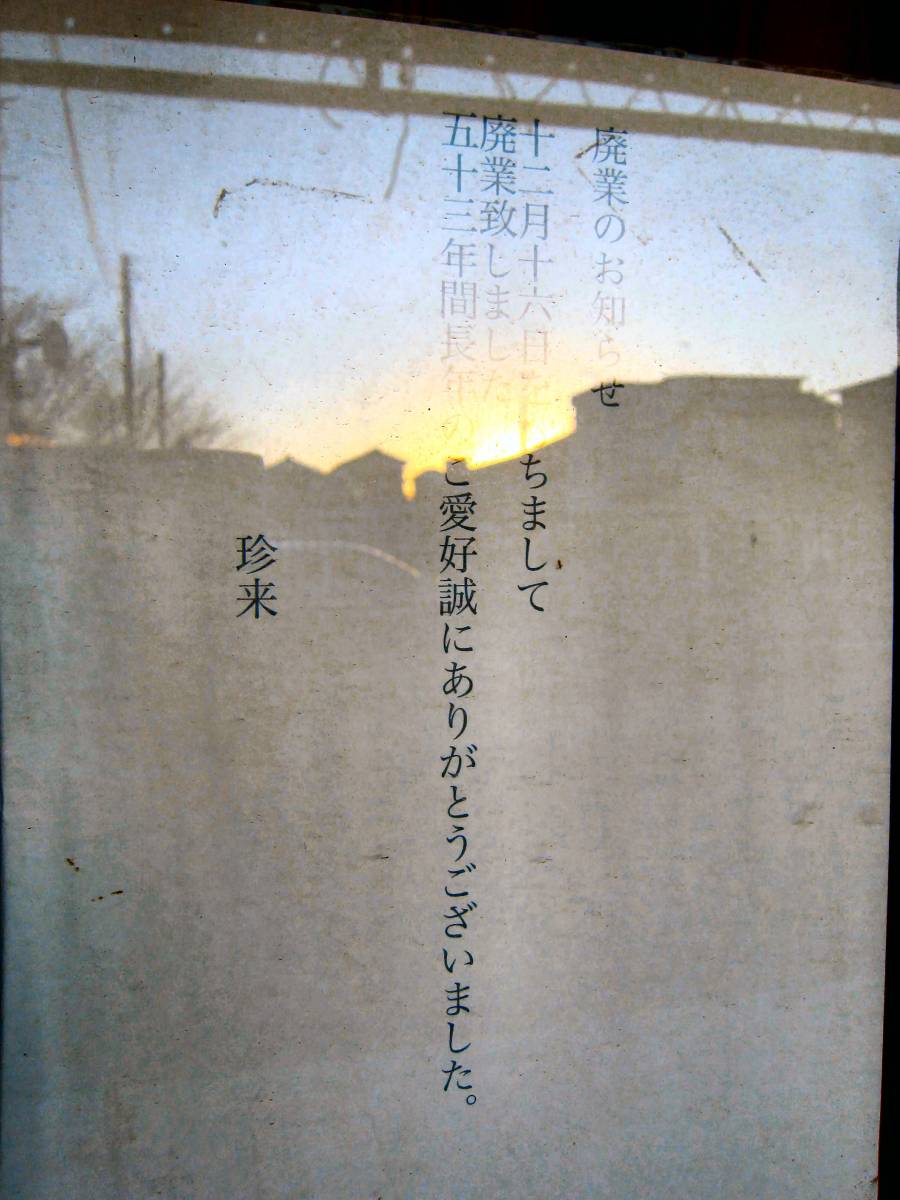 廃業のお知らせ
十二月十六日をもちまして
廃業致しました
五十三年間長年のご愛好誠にありがとうございました。
珍来